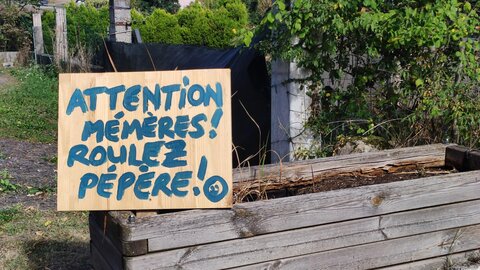 ATTENTION
MÉMÈRES!
ROULEZ
PÉPÈRE!